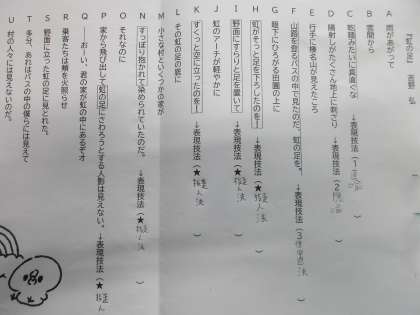 『虹の足』 吉野 弘
A 雨があがって
B 雲間から
C 乾麺みたいに真直な →表現技法（1 ）
D 陽射しがたくさん地上に刺さり →表現技法（2 ）
E 行手に榛名山が見えたころ
F 山路を登るバスの中で見たのだ。虹の足を。 →表現技法（3 倒置法 ）
G 眼下にひろがる田圃の上に
H 虹がそっと足を下ろしたのを！ →表現技法（★ 擬人法 ）
I 野面にすらりと足を置いて →表現技法（★ 擬人法 ）
J 虹のアーチが軽やかに
K すくっと空に立ったのを！ →表現技法（★ 擬人法 ）
L その虹の足の底に
M 小さな村といくつかの家が
N すっぽり抱かれて染められていたのだ。 →表現技法（★ 擬人法 ）
O それなのに
P 家から飛び出して虹の足にさわろうとする人影は見えない。 →表現技法（★ 擬人
Q ―おーい、君の家が虹の中にあるぞオ
R 乗客たちは頬を火照らせ
S 野面に立った虹の足に見とれた。
T 多分、あれはバスの中の僕らには見えて
U 村の人々には見えないのだ。